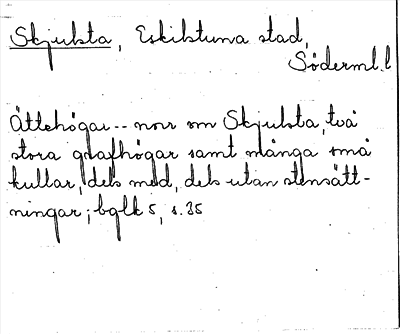 Skjulsta, Eskilstuna stad,
Söderml.l
Ättehögar -- norr om Skjulsta, två
stora grafhögar samt många små
kullar, dels med, dels utan stensätt-
ningar; bglk 5, s. 35